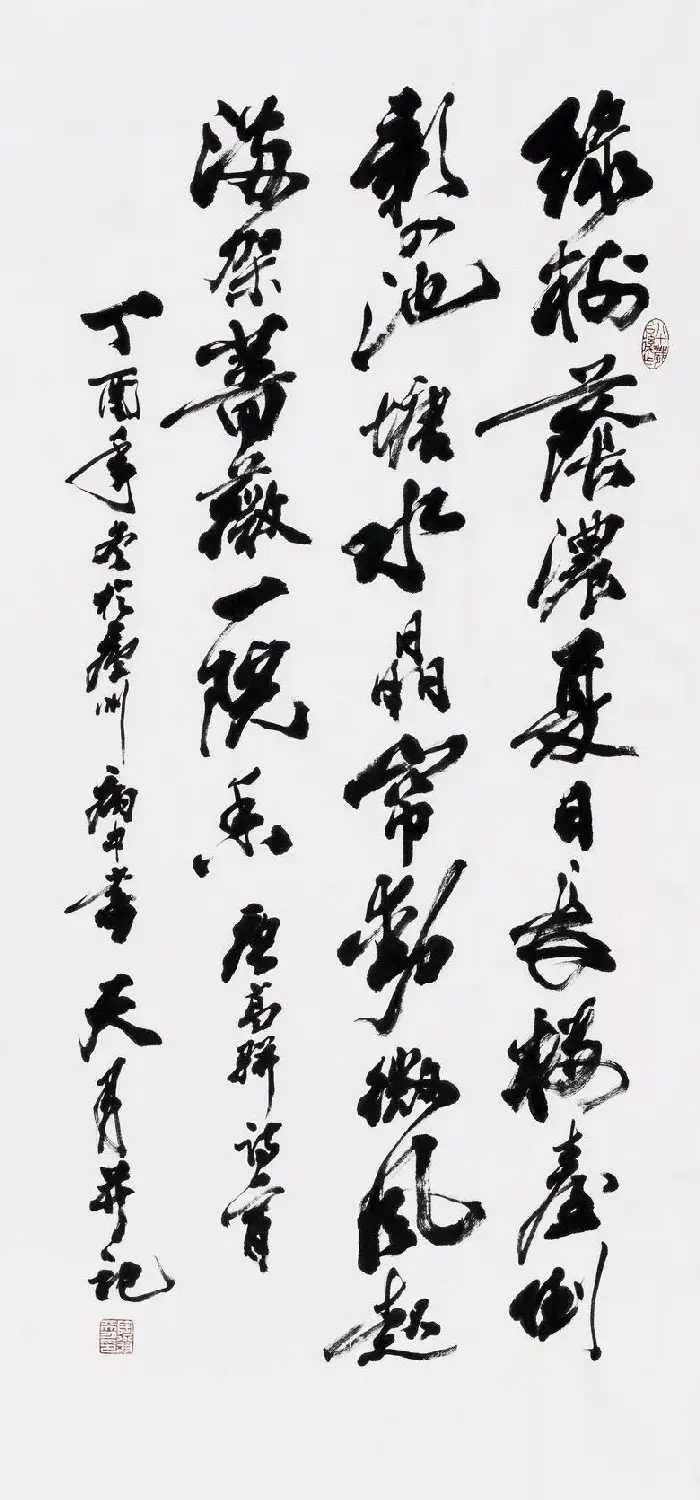 绿树荫浓夏日长楼台倒
影入池塘水晶帘动微风起
满架蔷薇一院香 唐高骈诗一首
丁酉年 于 州病中书 天月并记